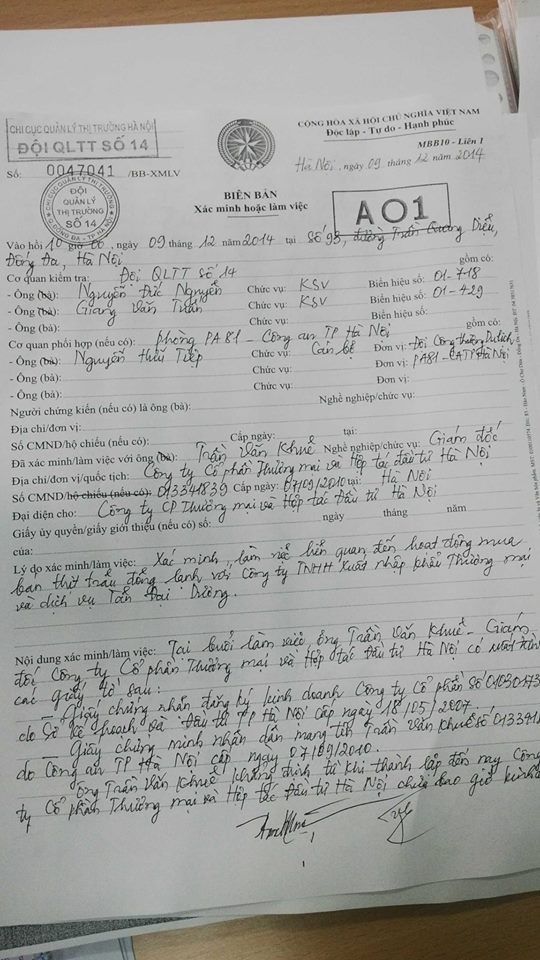 CHI CỤC QUẢN LÝ THỊ TRƯỜNG HÀ NỘI
ĐỘI QLTT SỐ 14
Số: 0047041 /BB-XMLV
CỘNG HÒA XÃ HỘI CHỦ NGHĨA VIỆT NAM
Độc lập - Tự do - Hạnh phúc
MBB10 - Liên 1
Hà Nội, ngày 09 tháng 12 năm 2014
ĐỘI QUẢN LÝ THỊ TRƯỜNG SỐ 14
BIÊN BẢN
Xác minh hoặc làm việc
A01
Vào hồi 10 giờ 00, ngày 09 tháng 12 năm 2014 tại Số 93, đường Trần Quang Diệu,
Đống Đa, Hà Nội
Cơ quan kiểm tra: Đội QLTT số 14 gồm có:
- Ông (bà): Nguyễn Đức Nguyễn Chức vụ: KSV Biển hiệu số: 01-718
- Ông (bà): Giang Văn Tuấn Chức vụ: KSV Biển hiệu số: 01-429
- Ông (bà): Chức vụ: Biển hiệu số:
Cơ quan phối hợp (nếu có): phòng PA81 - Công an TP Hà Nội gồm có:
- Ông (bà): Nguyễn Hữu Tiệp Chức vụ: Cán bộ Đơn vị: Đội Công thương, Du lịch
- Ông (bà): Chức vụ: Đơn vị: PA81-CATP Hà Nội
- Ông (bà): Chức vụ: Đơn vị:
Người chứng kiến (nếu có) là ông (bà): Nghề nghiệp/chức vụ:
Địa chỉ/đơn vị:
Số CMND/hộ chiếu (nếu có): Cấp ngày: tại:
Đã xác minh/làm việc với ông (bà): Trần Văn Khuê Nghề nghiệp/chức vụ: Giám đốc
Địa chỉ/đơn vị/quốc tịch: Công ty Cổ phần Thương mại và Hợp tác đầu tư Hà Nội
Số CMND/hộ chiếu (nếu có): 013341839 Cấp ngày: 07/09/2010 tại: Hà Nội
Đại diện cho: Công ty CP Thương mại và Hợp tác Đầu tư Hà Nội
Giấy ủy quyền/giấy giới thiệu (nếu có) số: ngày tháng năm
của:
Lý do xác minh/làm việc: Xác minh, làm việc liên quan đến hoạt động mua
bán thịt trâu đông lạnh với Công ty TNHH Xuất nhập khẩu Thương mại
và dịch vụ Tân Đại Dương.
Nội dung xác minh/làm việc: Tại buổi làm việc, ông Trần Văn Khuê - Giám
đốc Công ty Cổ phần Thương mại và Hợp tác Đầu tư Hà Nội có xuất trình
các giấy tờ sau:
- Giấy chứng nhận đăng ký kinh doanh Công ty Cổ phần số
do Sở kế hoạch và Đầu tư TP Hà Nội cấp ngày 18/05/2007.
- Giấy chứng minh nhân dân mang tên Trần Văn Khuê số
do Công an TP Hà Nội cấp ngày 07/09/2010.
Ông Trần Văn Khuê khẳng định từ khi thành lập đến nay Công
ty Cổ phần Thương mại và Hợp tác Đầu tư Hà Nội chưa bao giờ kinh
1